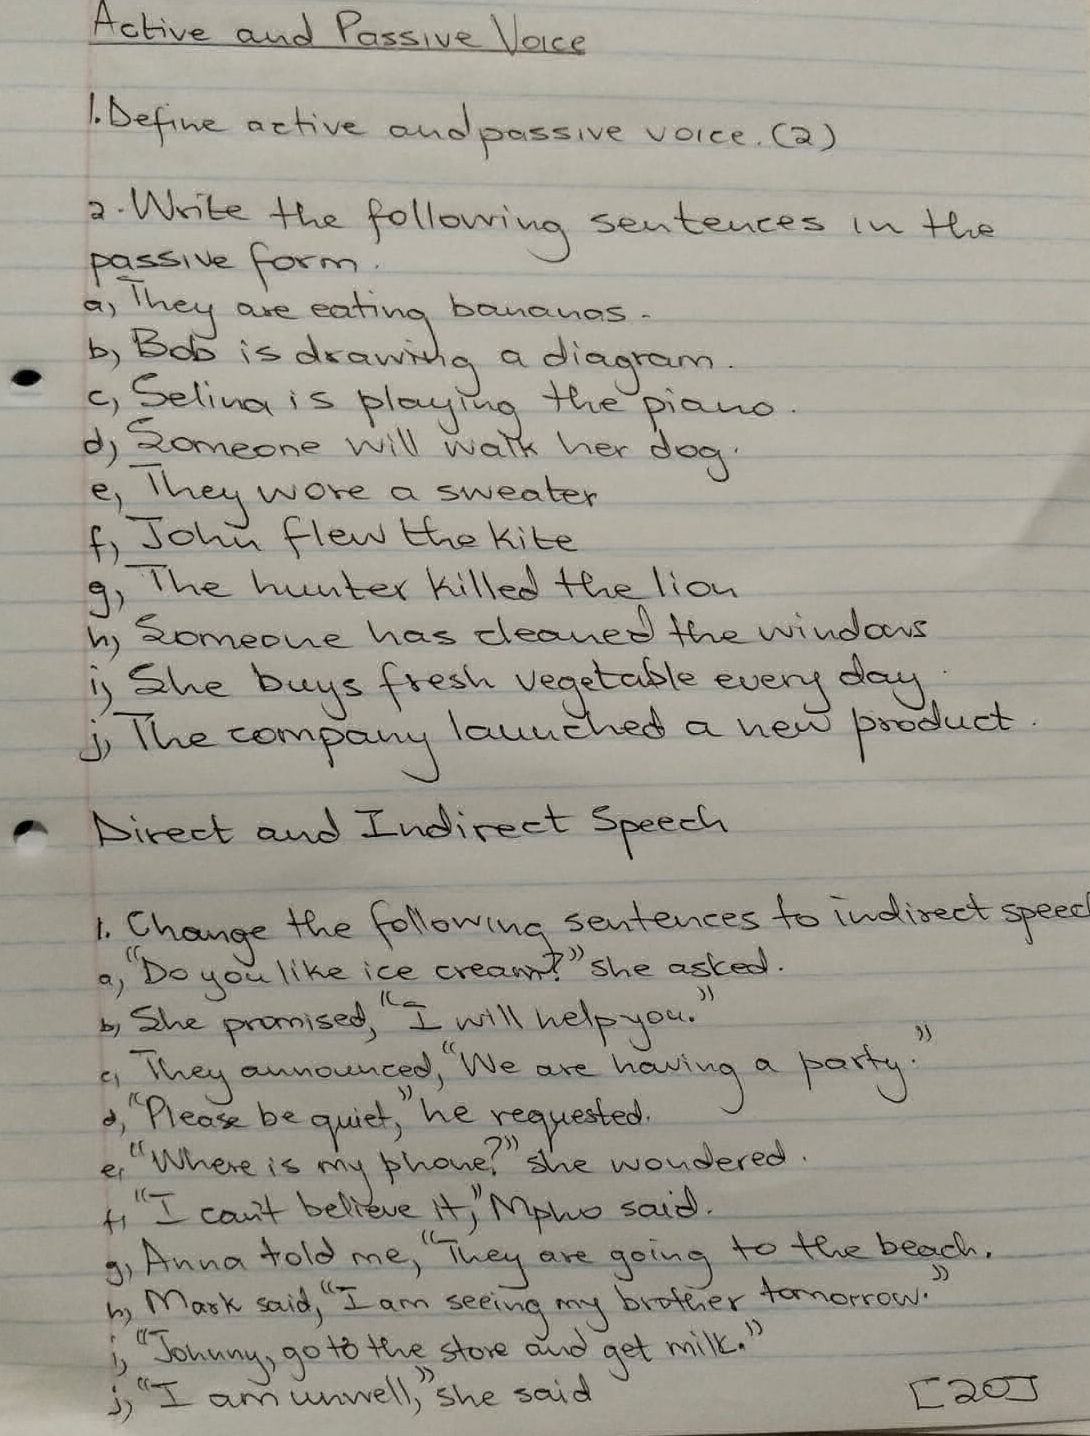 Active and Passive Voice
1. Define active and passive voice. (2)
2. Write the following sentences in the
passive form.
a, They are eating bananas.
b, Bob is drawing a diagram.
c, Selina is playing the piano.
d, Someone will walk her dog.
e, They wore a sweater
f, John flew the kite
g, The hunter killed the lion
h, Someone has cleaned the windows
i, She buys fresh vegetable every day
j, The company launched a new product.
Direct and Indirect Speech
1. Change the following sentences to indirect speech
a, "Do you like ice cream?" she asked.
b, She promised, "I will help you."
c, They announced, "We are having a party."
d, "Please be quiet," he requested.
e, "Where is my phone?" she wondered.
f, "I can't believe it," Mpho said.
g, Anna told me, "They are going to the beach."
h, Mark said, "I am seeing my brother tomorrow."
i, "Johnny, go to the store and get milk."
j, "I am unwell," she said [20]